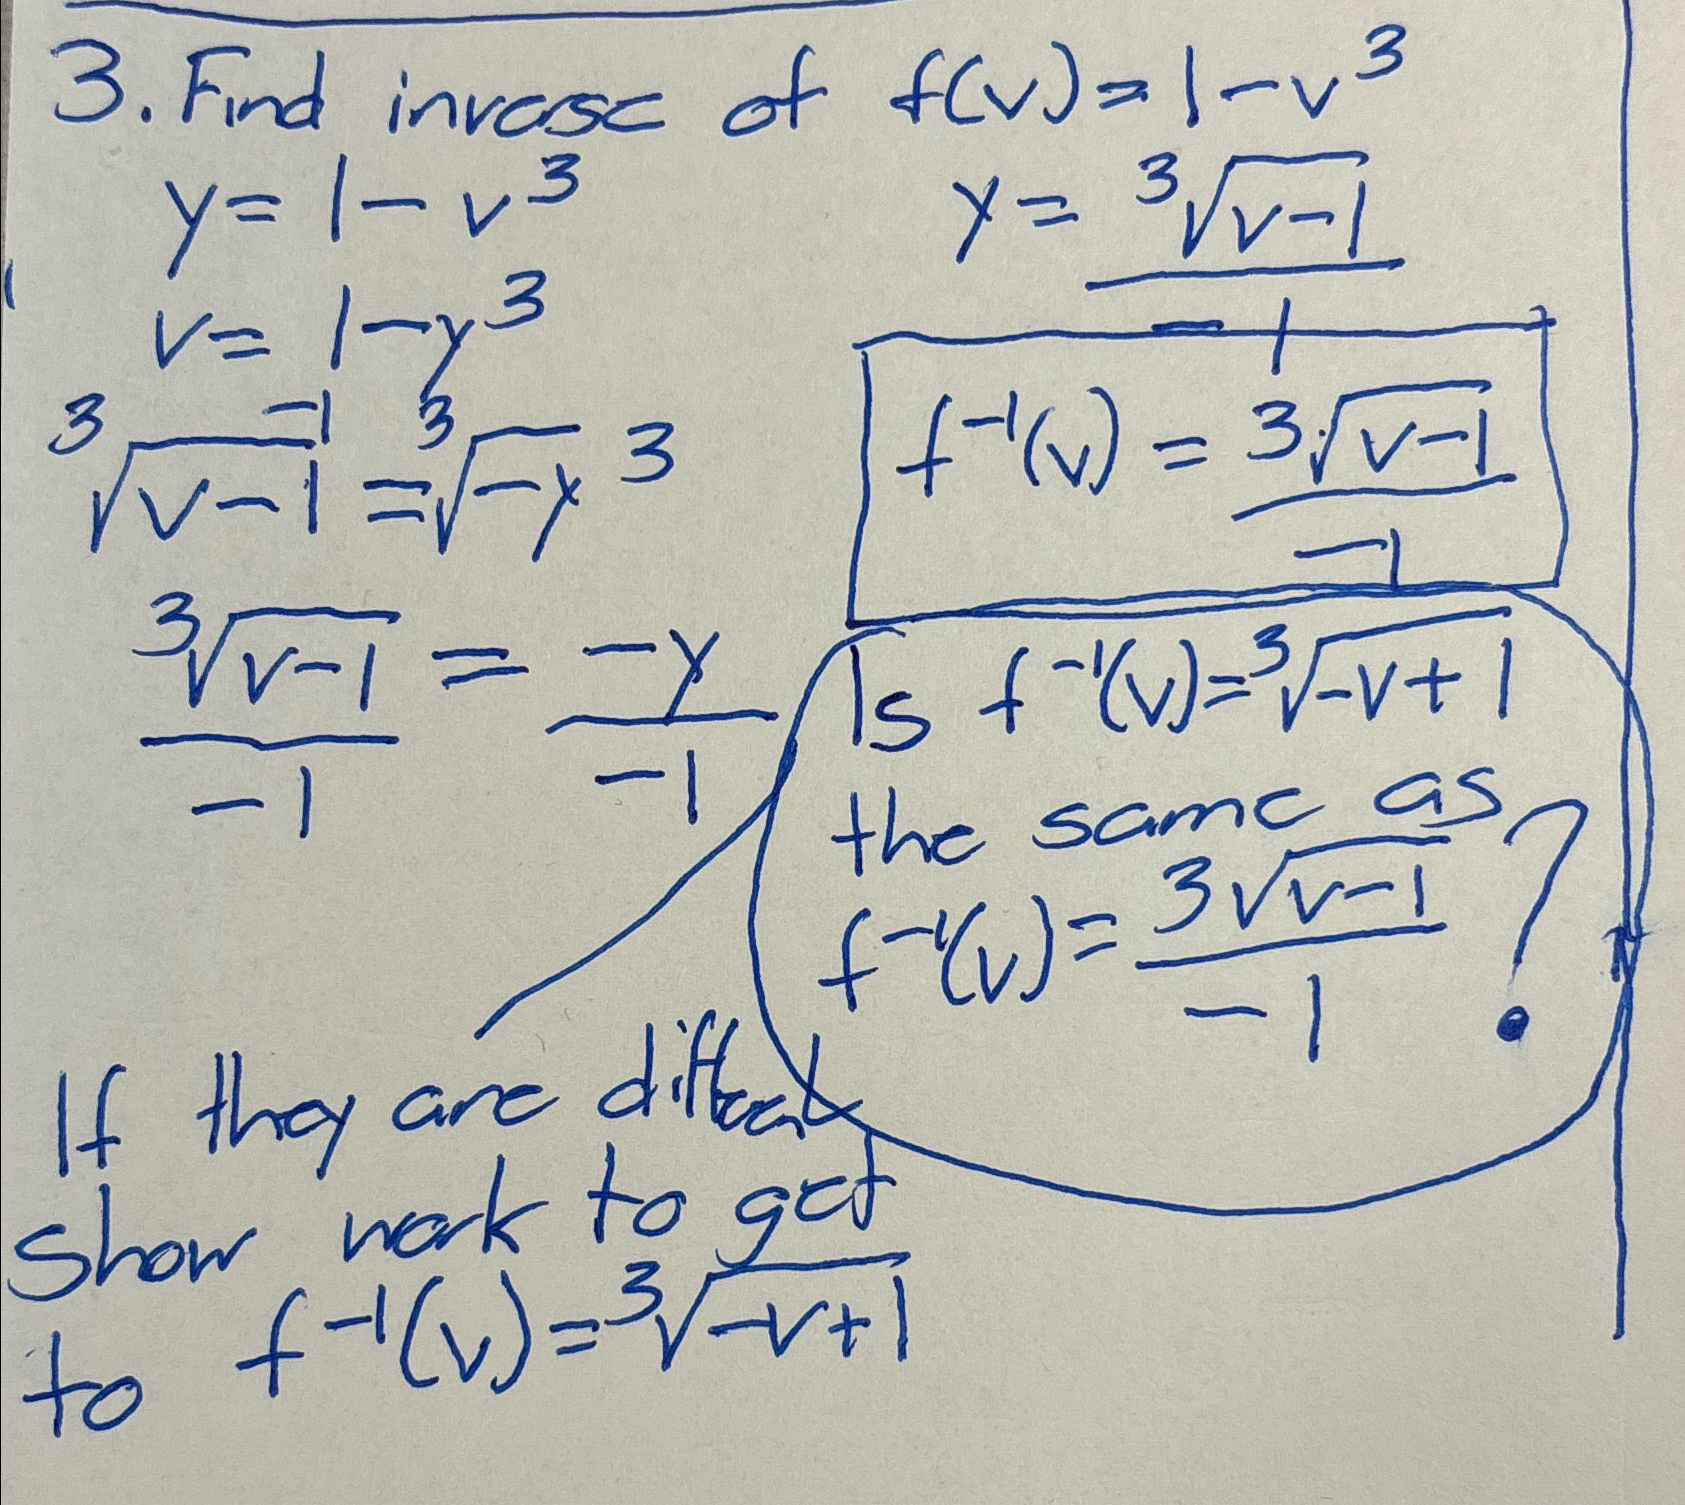 3. Find inverse of f(v) = 1 - v³
y = 1 - v³
v = 1 - y³
-1
³√(v - 1) = ³√(-y³)
³√(v - 1) / -1 = -y / -1
y = ³√(v - 1) / -1
f⁻¹(v) = ³√(v - 1) / -1
Is f⁻¹(v) = ³√(-v + 1)
the same as
f⁻¹(v) = ³√(v - 1) / -1 ?
If they are different
show work to get
to f⁻¹(v) = ³√(-v + 1)